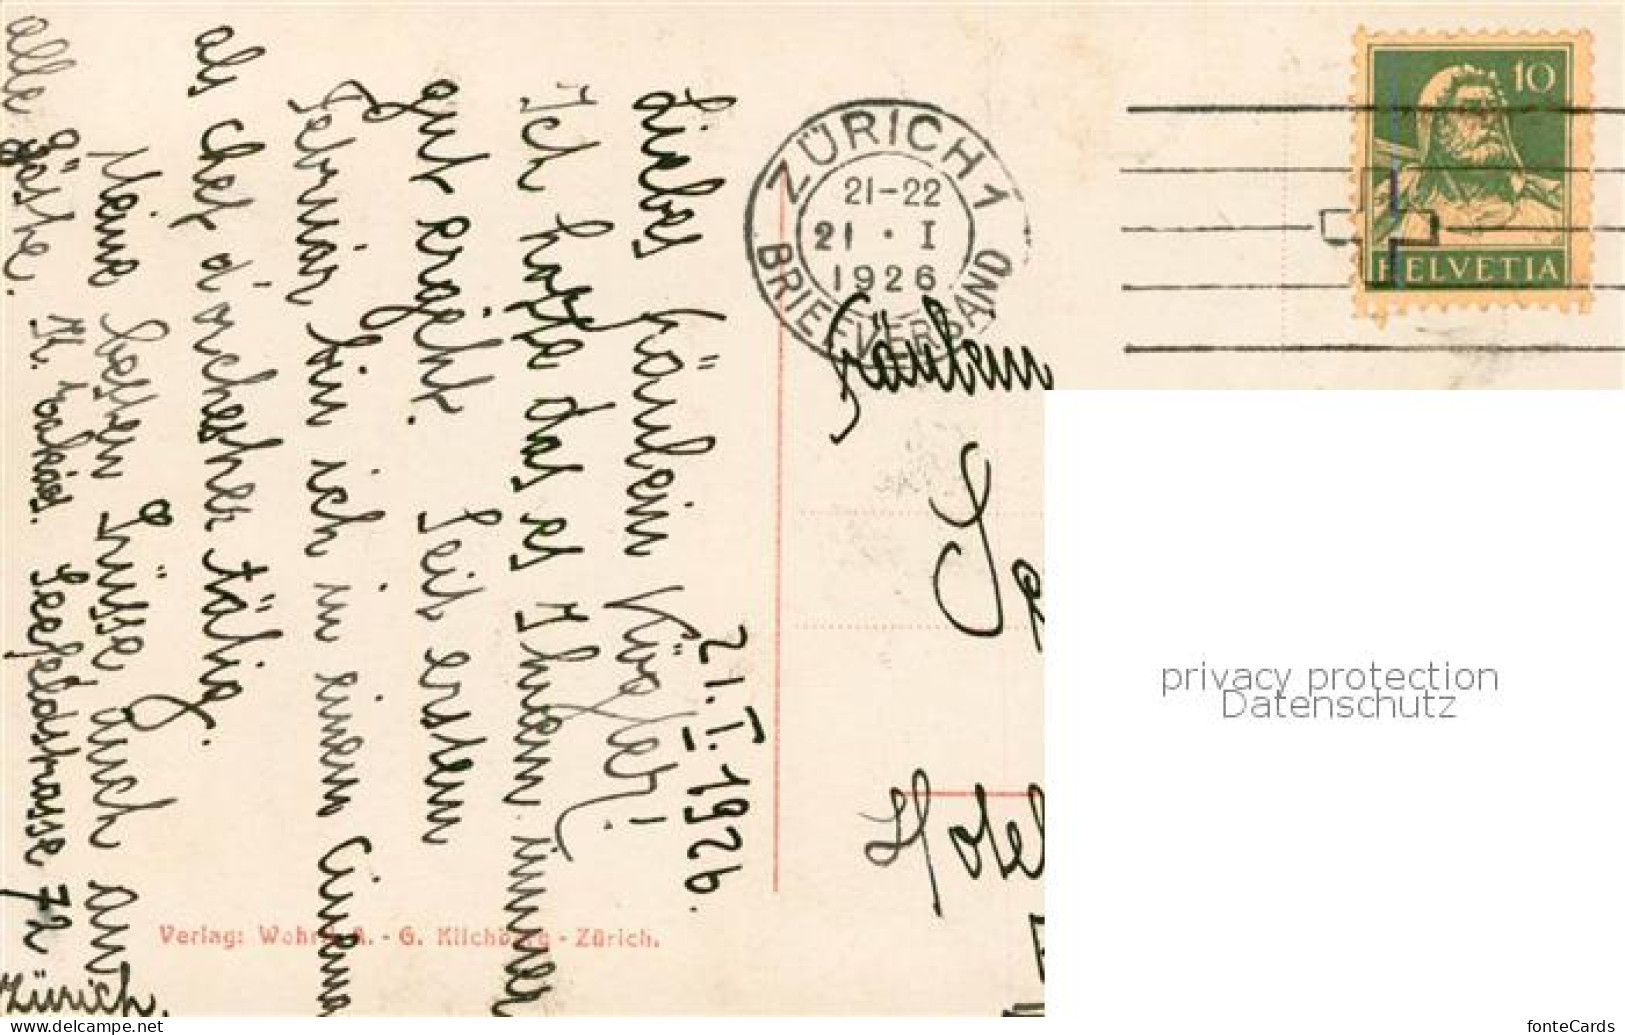 21.I.1926.
Liebes Fräulein
Ich hoffe das es Ihnen immer
gut ergeht. Seit erstem
Februar bin ich in einem Cinema
als Chef d'orchester tätig.
Meine besten Grüsse auch an
alle Gäste.
Seefeldstrasse
Zürich.
Verlag: A.-G. Kilchberg - Zürich.
ZÜRICH 1
21-22
21 · I
1926
BRIEFVERSAND
10
HELVETIA
Fräulein
Hotel
privacy protection
Datenschutz
www.delcampe.net
fonteCards